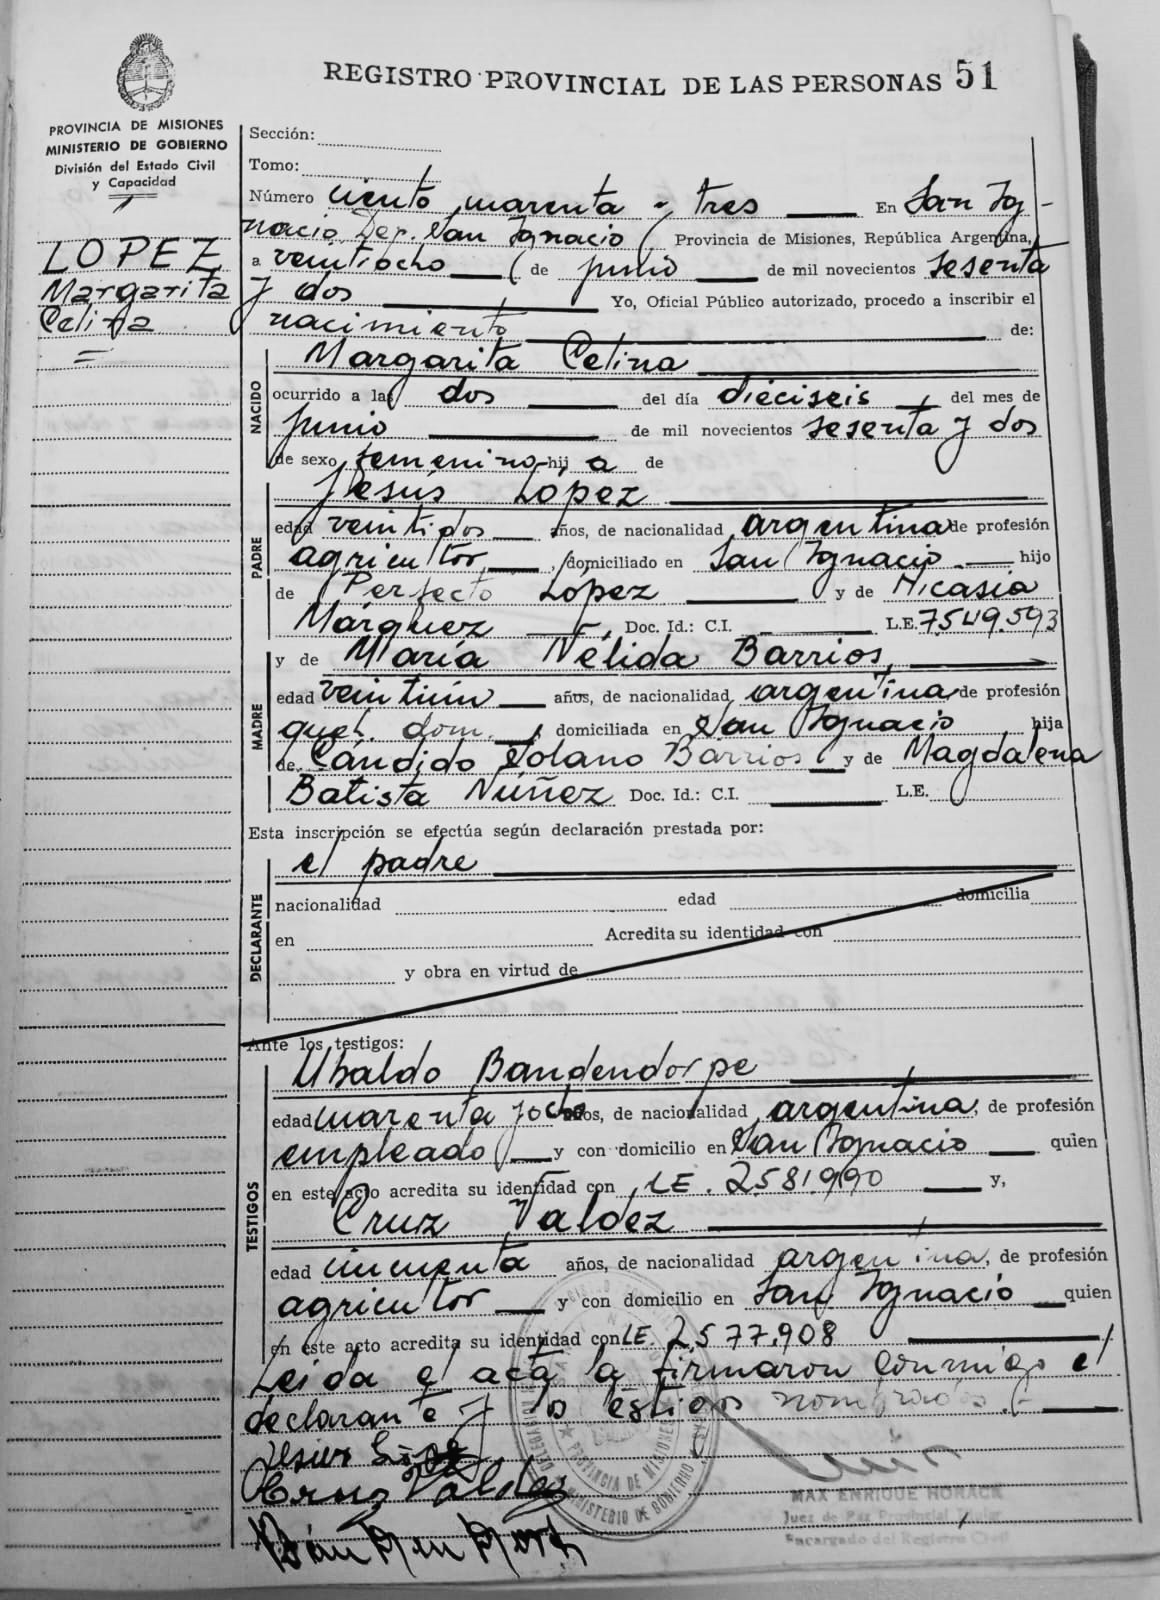 REGISTRO PROVINCIAL DE LAS PERSONAS 51
PROVINCIA DE MISIONES
MINISTERIO DE GOBIERNO
División del Estado Civil
y Capacidad
LOPEZ
Margarita
Celina
Sección:
Tomo:
Número ciento cuarenta y tres En San Ig-
nacio, Dep. San Ignacio, Provincia de Misiones, República Argentina,
a veintiocho de junio de mil novecientos sesenta
y dos Yo, Oficial Público autorizado, procedo a inscribir el
nacimiento de:
NACIDO
Margarita Celina
ocurrido a las dos del día dieciseis del mes de
junio de mil novecientos sesenta y dos
de sexo femenino hij a de
PADRE
Jesús López
edad veintidos años, de nacionalidad argentina de profesión
agricultor, domiciliado en San Ignacio hijo
de Perfecto López y de Nicasia
Márquez Doc. Id.: C.I. L.E. 7.549.593
MADRE
y de María Nélida Barrios,
edad veintiún años, de nacionalidad argentina, de profesión
queh. dom. domiciliada en San Ignacio hija
de Cándido Solano Barrios y de Magdalena
Batista Núñez Doc. Id.: C.I. L.E.
Esta inscripción se efectúa según declaración prestada por:
DECLARANTE
el padre
nacionalidad edad domicilia
en Acredita su identidad con
y obra en virtud de
Ante los testigos:
TESTIGOS
Ubaldo Bandendorpe
edad cuarenta y ocho años, de nacionalidad argentina, de profesión
empleado y con domicilio en San Ignacio quien
en este acto acredita su identidad con LE. 2.581.990 y,
Cruz Valdez
edad cincuenta años, de nacionalidad argentina, de profesión
agricultor y con domicilio en San Ignacio quien
en este acto acredita su identidad con LE. 2.577.908
Leída el acta la firmaron conmigo el
declarante y los testigos nombrados.
Jesús López
Cruz Valdez
PROVINCIA DE MISIONES
MINISTERIO DE GOBIERNO
MAX ENRIQUE HORACK
Juez de Paz Provincial Titular
Encargado del Registro Civil